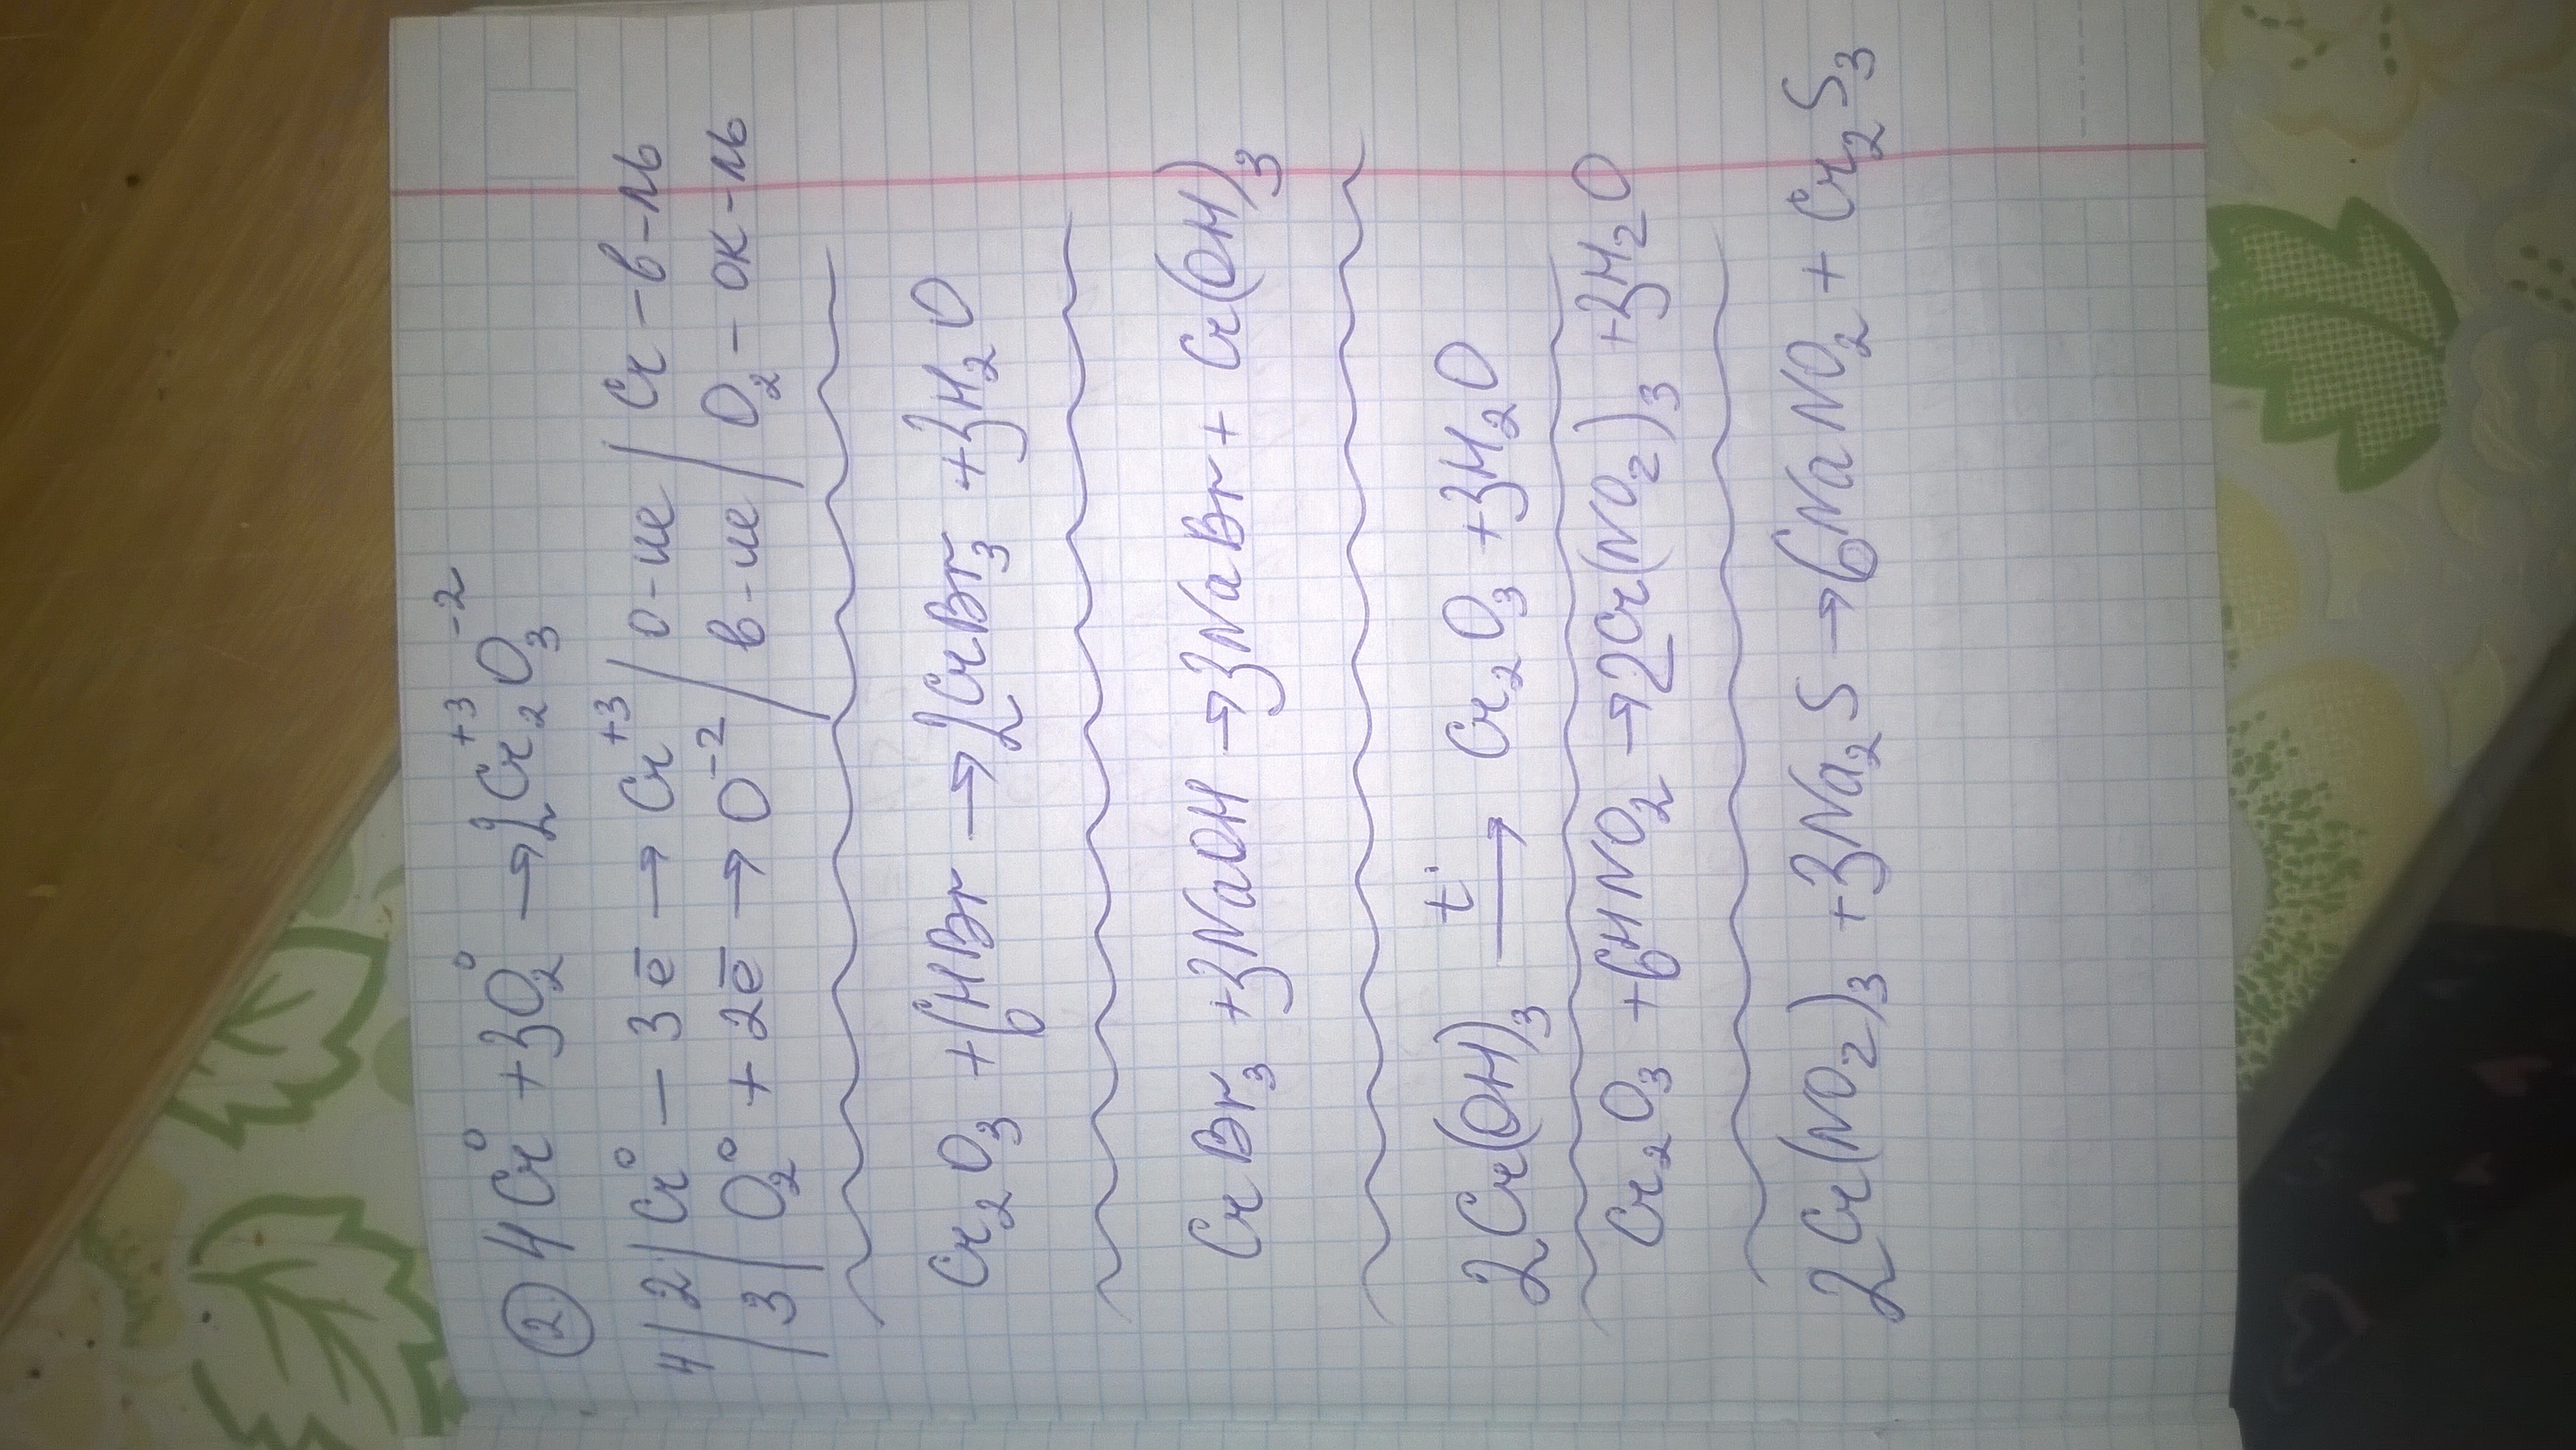 ② 4Cr⁰ + 3O₂⁰ → 2Cr₂⁺³O₃⁻²
4/2/Cr⁰ − 3ē → Cr⁺³ / о-ие / Cr - в-ль
/3/O₂⁰ + 2ē → O⁻² / в-ие / O₂ - ок-ль
Cr₂O₃ + 6HBr → 2CrBr₃ + 3H₂O
CrBr₃ + 3NaOH → 3NaBr + Cr(OH)₃
2Cr(OH)₃ t° → Cr₂O₃ + 3H₂O
Cr₂O₃ + 6HNO₂ → 2Cr(NO₂)₃ + 3H₂O
2Cr(NO₂)₃ + 3Na₂S → 6NaNO₂ + Cr₂S₃